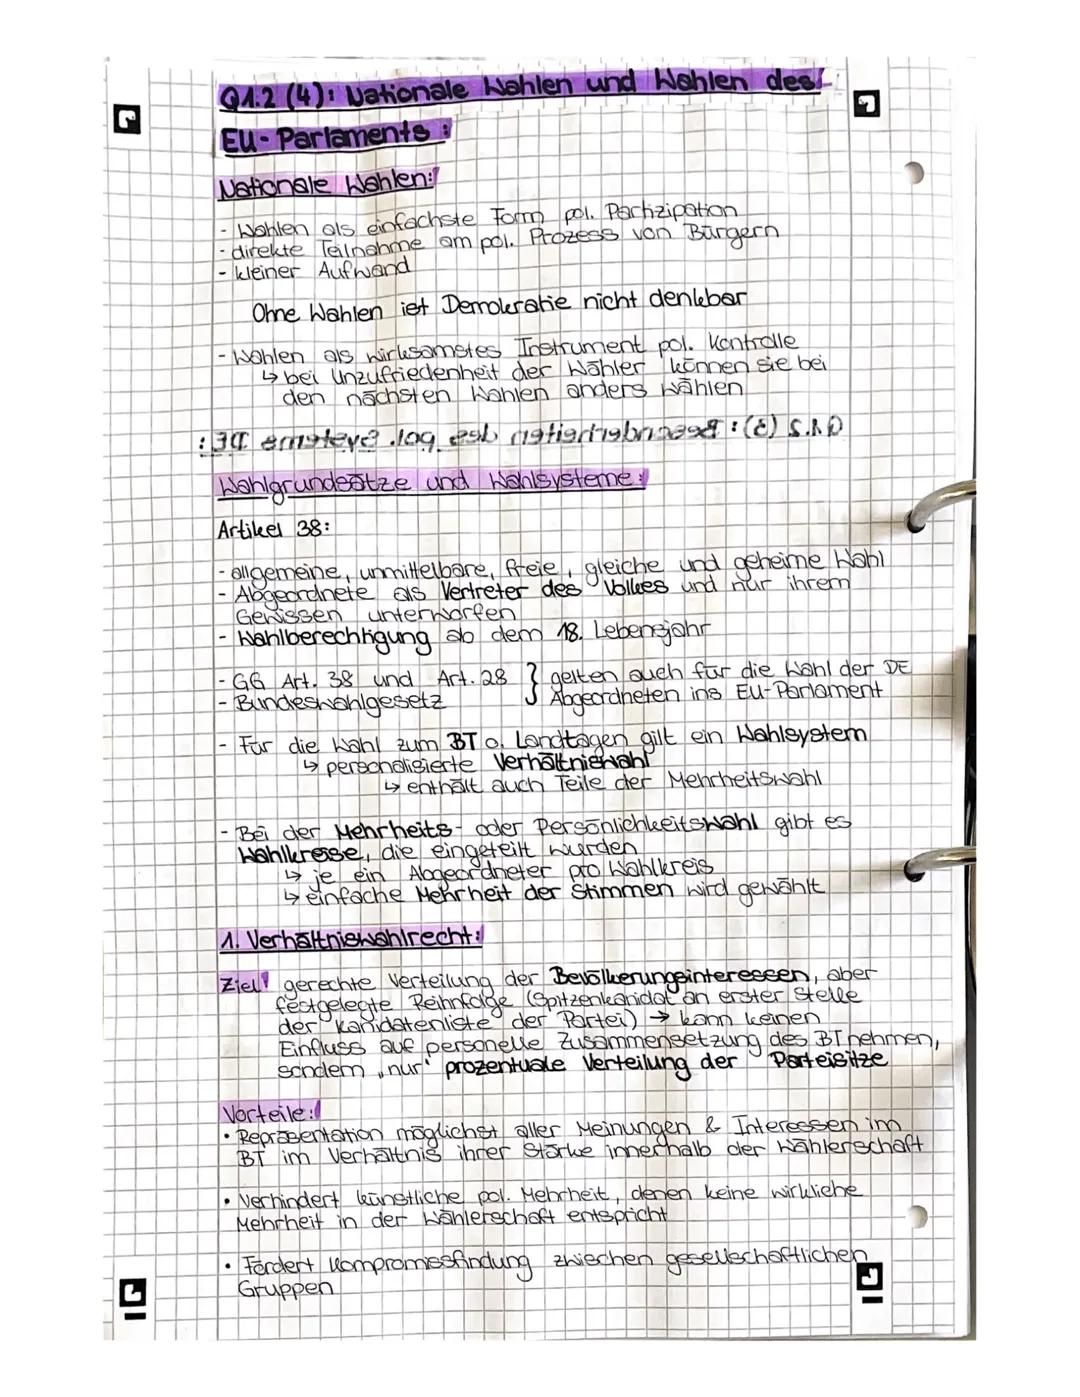 Q1.2 (4): Nationale Wahlen und Wahlen des
EU-Parlaments:
Nationale Wahlen:
- Wahlen als einfachste Form pol. Partizipation
- direkte Teilnahme am pol. Prozess von Bürgern
- kleiner Aufwand
Ohne Wahlen ist Demokratie nicht denkbar
- Wahlen als wirksamstes Instrument pol. Kontrolle
↳ bei Unzufriedenheit der Wähler können sie bei
den nächsten Wahlen anders wählen
Q1.2 (3): Besonderheiten des pol. Systems DE:
Wahlgrundsätze und Wahlsysteme:
Artikel 38:
- allgemeine, unmittelbare, freie, gleiche und geheime Wahl
- Abgeordnete als Vertreter des Volkes und nur ihrem
Gewissen unterworfen
- Wahlberechtigung ab dem 18. Lebensjahr
- GG Art. 38 und Art. 28 } gelten auch für die Wahl der DE
- Bundeswahlgesetz Abgeordneten ins EU-Parlament
- Für die Wahl zum BT o. Landtagen gilt ein Wahlsystem
↳ personalisierte Verhältniswahl
↳ enthält auch Teile der Mehrheitswahl
- Bei der Mehrheits- oder Persönlichkeitswahl gibt es
Wahlkreise, die eingeteilt wurden
↳ je ein Abgeordneter pro Wahlkreis
↳ einfache Mehrheit der Stimmen wird gewählt
1. Verhältniswahlrecht:
Ziel: gerechte Verteilung der Bevölkerungsinteressen, aber
festgelegte Reihnfolge (Spitzenkanidat an erster Stelle
der Kanidatenliste der Partei) → kann keinen
Einfluss auf personelle Zusammensetzung des BT nehmen,
sondern „nur" prozentuale Verteilung der Parteisitze
Vorteile:
• Repräsentation möglichst aller Meinungen & Interessen im
BT im Verhältnis ihrer Stärke innerhalb der Wählerschaft
• Verhindert künstliche pol. Mehrheit, denen keine wirkliche
Mehrheit in der Wählerschaft entspricht
• Fördert Kompromissfindung zwischen gesellschaftlichen
Gruppen